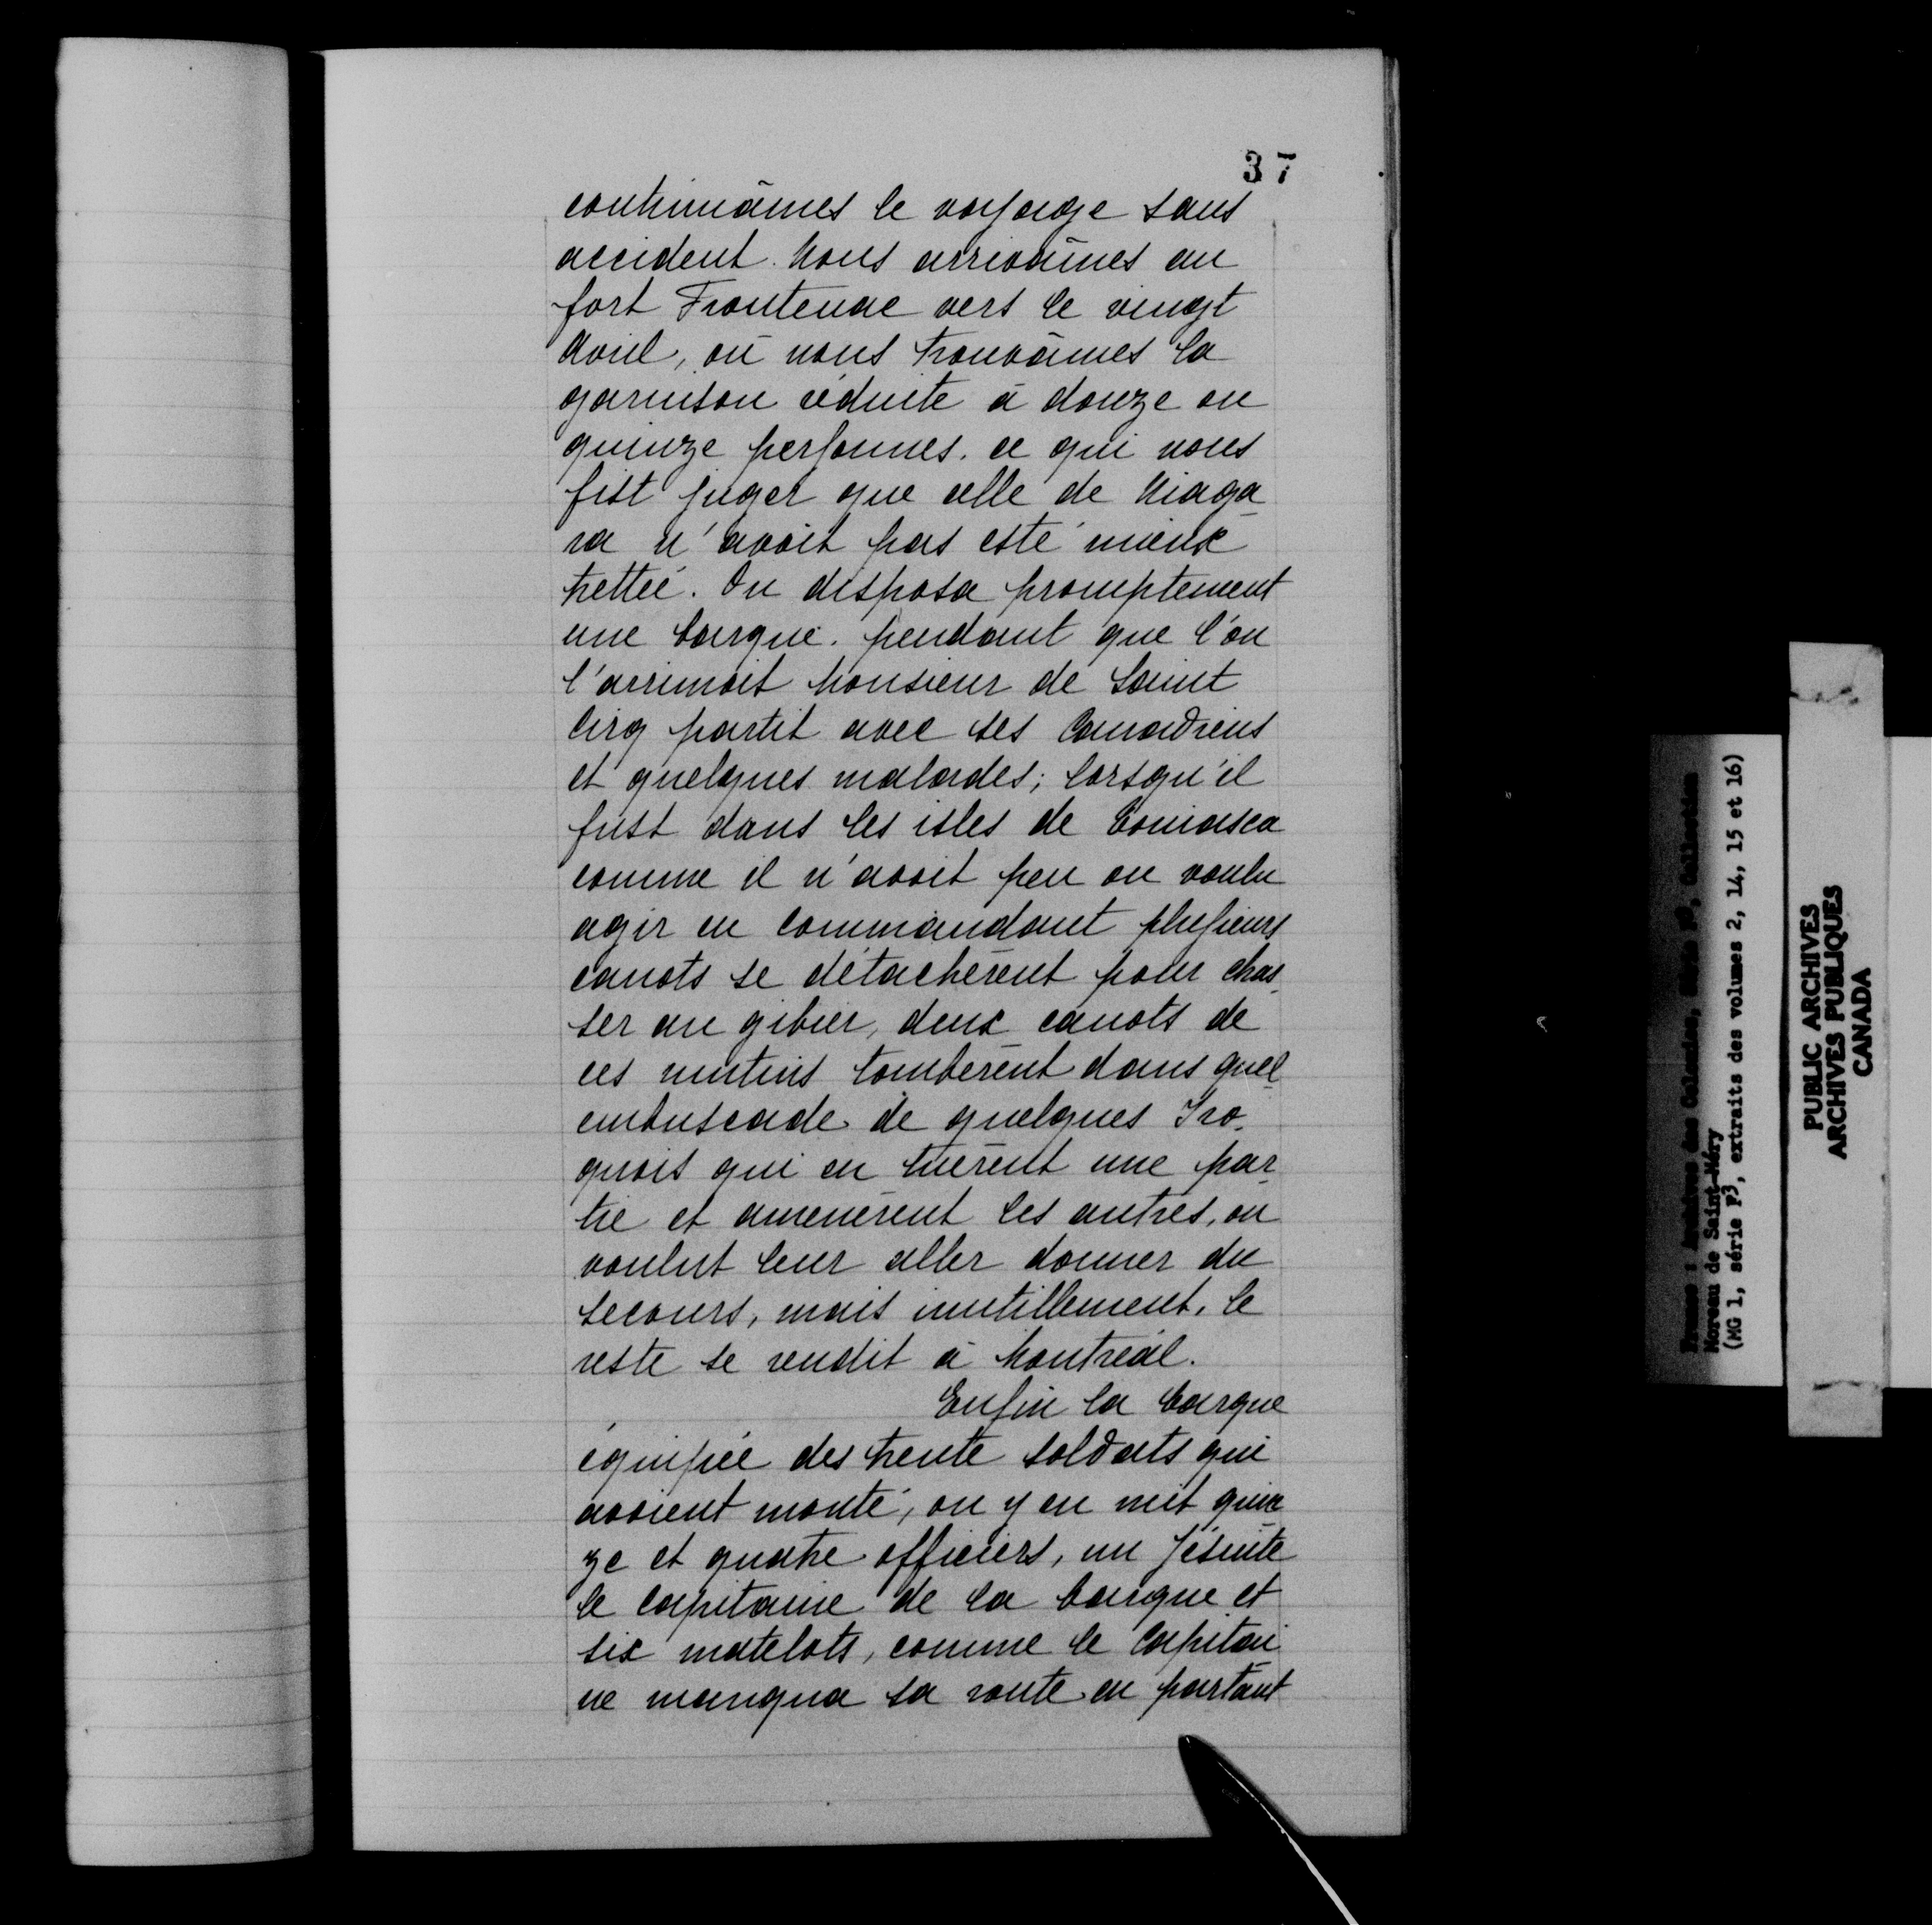 37
continuâmes le voyage sans
accident. Nous arrivâmes au
fort Frontenac vers le vingt
Avril, où nous trouvâmes la
garnison réduite à douze ou
quinze personnes. ce qui nous
fist juger que celle de Niaga
ra n'avoit pas esté mieux
trettée. On disposa promptement
une barque. pendant que l'on
l'arrimoit Monsieur de Saint
Cirq partit avec ses Canadiens
et quelques malades; lorsqu'il
fust dans les isles de Toniasca
comme il n'avoit peu ou voulu
agir en commandant plusieurs
canots se détachèrent pour chas
ser au gibier, deux canots de
ces mutins tombèrent dans quel
embuscade de quelques Iro
quois qui en tuèrent une par
tie et amenèrent les autres, on
voulut leur aller donner du
secours, mais inutillement, le
reste se rendit à Montréal.
Enfin la barque
équipée des trente soldats qui
avoient monté, on y en mit quin
ze et quatre officiers, un Jésuite
le capitaine de la barque et
six matelots, comme le Capitai
ne manqua sa route en partant
France : Archives des Colonies, Série F3, Collection
Moreau de Saint-Méry
(MG 1, série F3, extraits des volumes 2, 14, 15 et 16)
PUBLIC ARCHIVES
ARCHIVES PUBLIQUES
CANADA